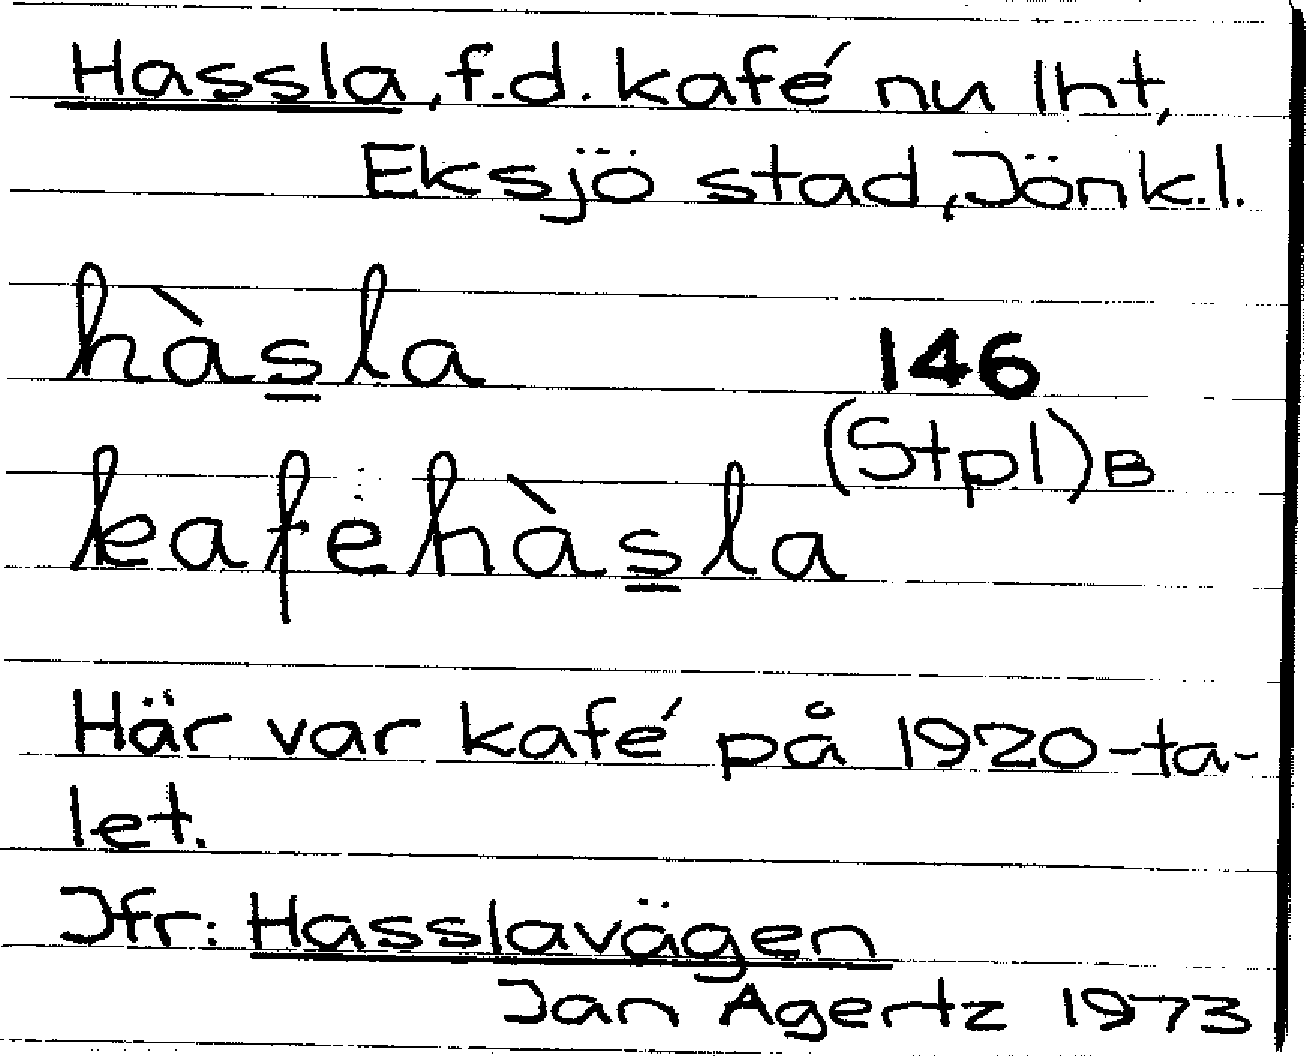 Hassla, f.d. kafé nu lht,
Eksjö stad, Jönk.l.
hàs̲la
146
(Stpl)B
kafehàs̲la
Här var kafé på 1920-ta-
let.
Jfr: Hasslavägen
Jan Agertz 1973